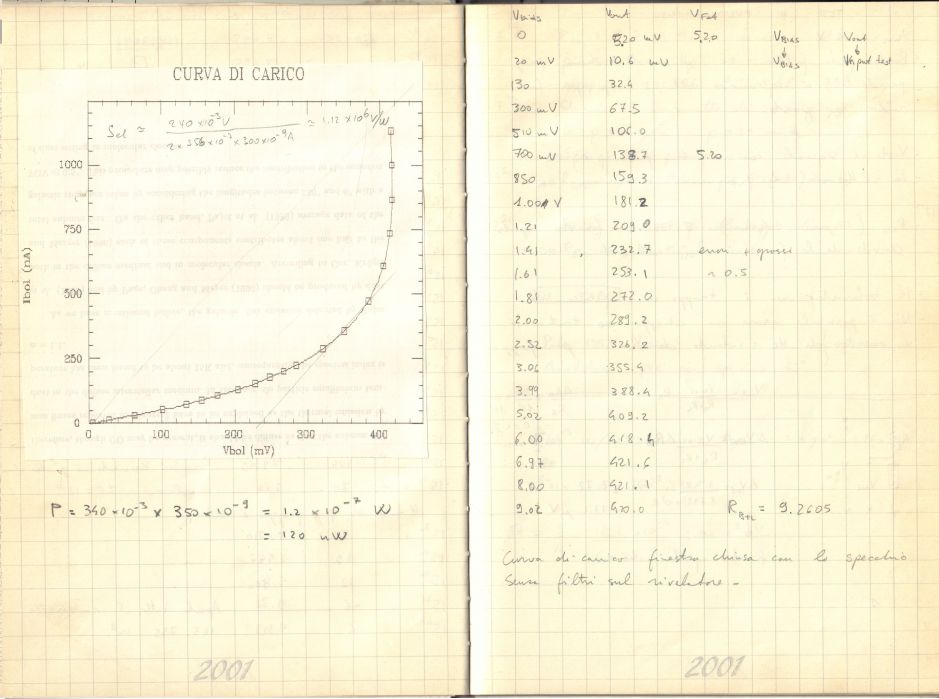 CURVA DI CARICO
Sel ≈ 240 x10⁻³V / 2 x 356 x10⁻³ x 300 x10⁻⁹A ≈ 1.12 x10⁶ V/W
1000
750
500
250
0
Ibol (nA)
0 100 200 300 400
Vbol (mV)
P = 340 x10⁻³ x 350 x10⁻⁹ = 1.2 x 10⁻⁷ W
= 120 nW
2001
Vbias Vout
0 5.20 mV 5.20 VBIAS Vout
20 mV 10.6 mV VBIAS Input test
130 32.4
300 mV 67.5
510 mV 106.0
700 mV 138.7 5.20
850 159.3
1.001 V 181.2
1.21 209.0
1.41 232.7 errori + grossi
1.61 253.1 ~ 0.5
1.81 272.0
2.00 289.2
2.52 326.2
3.06 355.4
3.99 388.4
5.02 409.2
6.00 418.4
6.97 421.6
8.00 421.1
9.02 420.0 = 9.2605
Curva di carico finestra chiusa con lo specchio
Senza filtri sul rivelatore -
2001